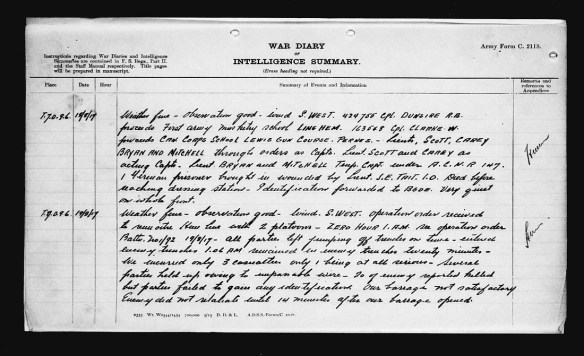 WAR DIARY
OF
INTELLIGENCE SUMMARY.
(Erase heading not required.)
Army Form C. 2118.
Instructions regarding War Diaries and Intelligence
Summaries are contained in F. S. Regs., Part II.
and the Staff Manual respectively. Title pages
will be prepared in manuscript.
Place Date Hour Summary of Events and Information Remarks and references to Appendices
Weather fine - observation good - wind S. WEST. 434755 Cpl. DUNSIRE R.B.
proceeds First Army Musketry School LINGHEM. 163568 Cpl. CLARKE W.
proceeds Can Corps School LEWIS GUN COURSE. PERNES. Lieuts, SCOTT, CAREY
BRYAN AND MITCHELL through orders as Capts. Lieut SCOTT and CAREY as
acting Capts. Lieut BRYAN and MITCHELL Temp. Capt. under
1 German prisoner brought in wounded by Lieut. S.E. TAIT. Died before
reaching dressing station. Identification forwarded to Bde. Very quiet
on whole front.
Weather fine - observation good - wind. S. WEST. operation order received
to line with 2 platoons - ZERO HOUR 1. A.M. operation order
Battn. 19/8/17 - All parties left jumping off trenches on time - entered
enemy trenches 1.06 AM remained in enemy trenches twenty minutes -
We incurred only 3 casualties only 1 being at all serious - Several
parties held up owing to impassable wire - 20 of enemy reported killed
but parties failed to gain any identification. Our barrage not satisfactory
Enemy did not retaliate until 14 minutes after our barrage opened.